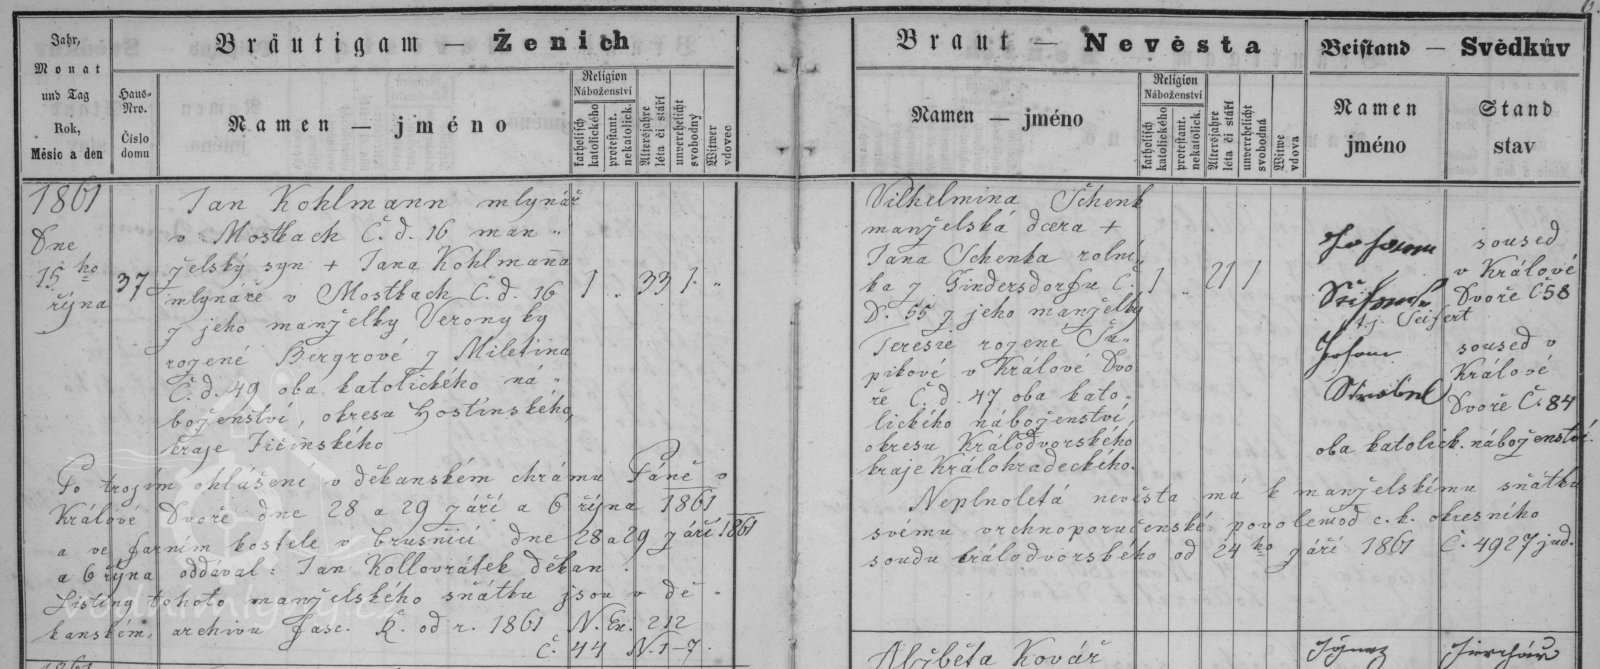 6.
Jahr,
Monat
und Tag
Rok,
Měsíc a den
Haus-
Nro.
Číslo
domu
Bräutigam — Ženich
Namen — jméno
Religion
Náboženství
katholisch
katolického
protestant.
nekatolick.
Altersjahre
léta či stáří
unverehelicht
svobodný
Witwer
vdovec
Braut — Nevěsta
Namen — jméno
Religion
Náboženství
katholisch
katolického
protestant.
nekatolick.
Altersjahre
léta či stáří
unverehelicht
svobodná
Witwe
vdova
Beistand — Svědkův
Namen
jméno
Stand
stav
1861
Dne
15 ho
října
37
Jan Kohlmann mlynář
v Mostkach Č. d. 16 man„
želský syn + Jana Kohlmanna
mlynáře v Mostkach Č. d. 16
z jeho manželky Veronyky
rozené Bergrové z Miletina
Č. d. 49 oba katolického ná„
boženství, okresu Hostinského,
kraje Jičínského
1 „ 33 1 „
Po trojím ohlášení v děkanském chrámu Páně v
Králové Dvoře dne 28 a 29 září a 6 října 1861
a ve farním kostele v Brusnici dne 28 a 29 září 1861
a 6 října oddával: Jan Kollovrátek děkan
Listiny tohoto manželského sňátku jsou v dě„
kanském archivu fasc. K. od r. 1861 N. Ex. 212
Č. 44 N. 1-7.
Vilhelmina Schenk
manželská dcera +
Jana Schenka rolní„
ka z Gindersdorfu Č.
D. 55 z jeho manželky
Teresie rozené Šu„
pikové v Králové Dvo
ře Č. d. 47 oba kato„
lického náboženství,
okresu Králodvorského
kraje Králohradeckého.
1 „ 21 1
Neplnoletá nevěsta má k manželskému sňátku
svému vrchnoporučenské povolení od c. k. okresního
soudu králodvorského od 24 ho září 1861 Č. 4927 jud.
Johann
t. j. Seifert
soused
v Králové
Dvoře Č 58
Johann
Strobel
soused v
Králové
Dvoře Č. 84
oba katolick. náboženství.
1861
Alžběta Kovář
Ignaz
vodnimlyny.cz